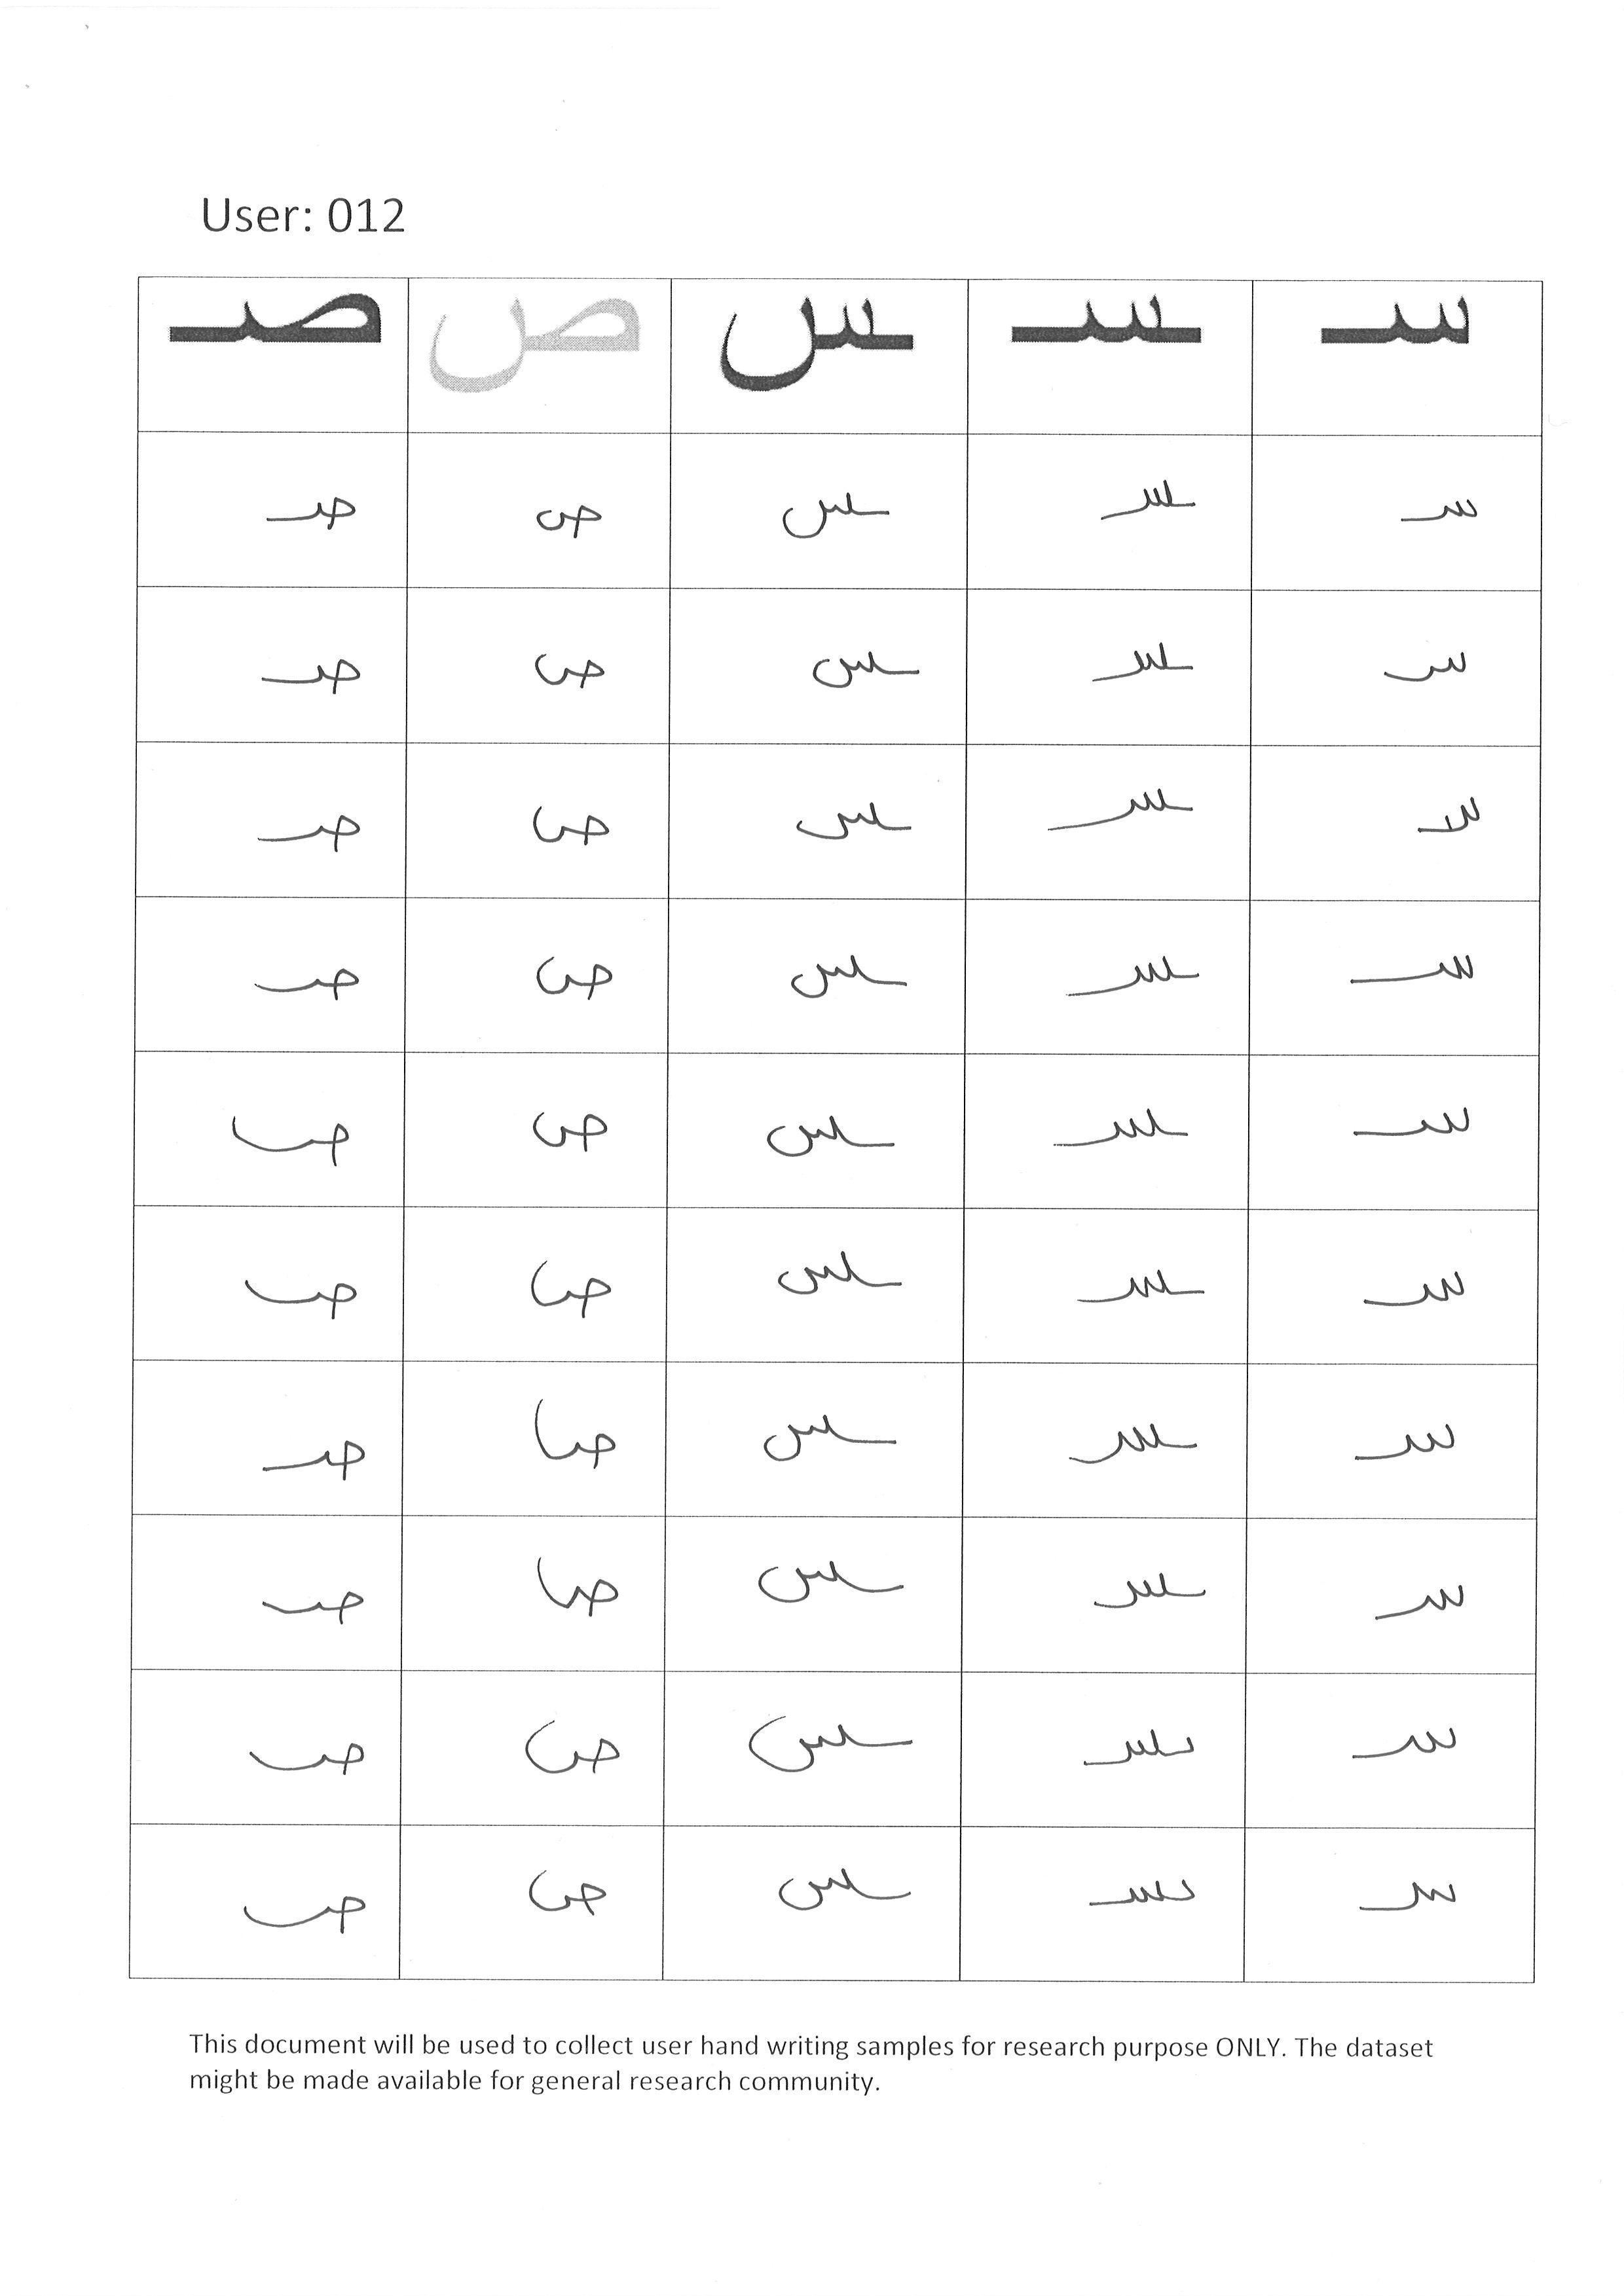 User: 012
سـ ـسـ ـس ص صـ
سـ ـسـ ـس ص صـ
سـ ـسـ ـس ص صـ
سـ ـسـ ـس ص صـ
سـ ـسـ ـس ص صـ
سـ ـسـ ـس ص صـ
سـ ـسـ ـس ص صـ
سـ ـسـ ـس ص صـ
سـ ـسـ ـس ص صـ
سـ ـسـ ـس ص صـ
سـ ـسـ ـس ص صـ
This document will be used to collect user hand writing samples for research purpose ONLY. The dataset
might be made available for general research community.